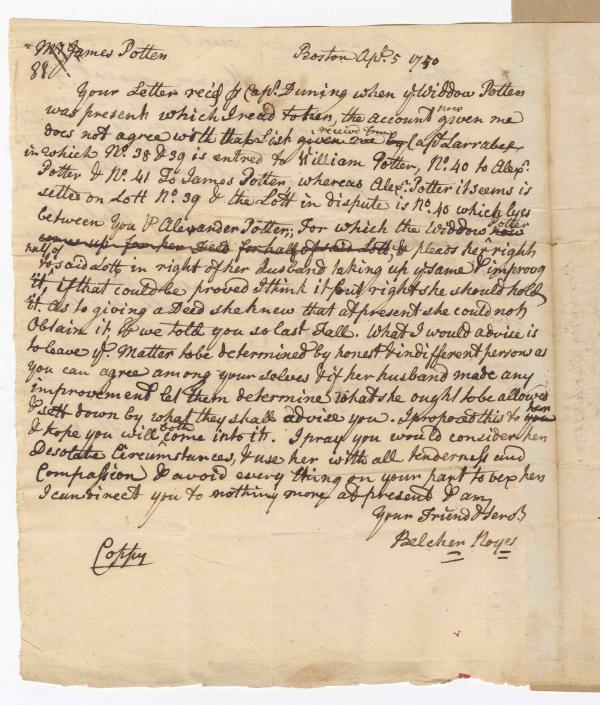 Mr James Potter Boston Apl. 5 1750
Your Letter reic'd p Cap.t Duning when ye Widdow Potter
was present which I read to her, the account now given me
does not agree with that List given me by received from Cap.t Larrabee
in which No. 38 & 39 is entred to William Potter, No. 40 to Alexr.
Potter & No. 41 To James Potter, whereas Alexr. Potter it seems is
settled on Lott No. 39 & the Lott in dispute is No. 40 which lyes
between You & Alexander Potter; For which the Widdow Potter now
comes up for her Deed for half of said Lott, & pleads her right
to half of said Lott, in right of her Husband taking up ye same & improvg
it, if that could be proved I think it but right she should hold
it. As to giving a Deed she knew that at present she could not
Obtain it, & we told you so last Fall. What I would advise is
to leave ye. Matter to be determined by honest & indifferent persons as
you can agree among your selves & if her husband made any
improvement let them determine what she ought to be allowed
& sett down by what they shall advise you. I proposed this to her
& I hope you will both come into it. I pray you would consider her
Desolate Circumstances, & use her with all tenderness and
Compassion & avoid every thing on your part to vex her
I can direct you to nothing more at present & am
Your Friend & Serv.t
Belcher Noyes
Coppy